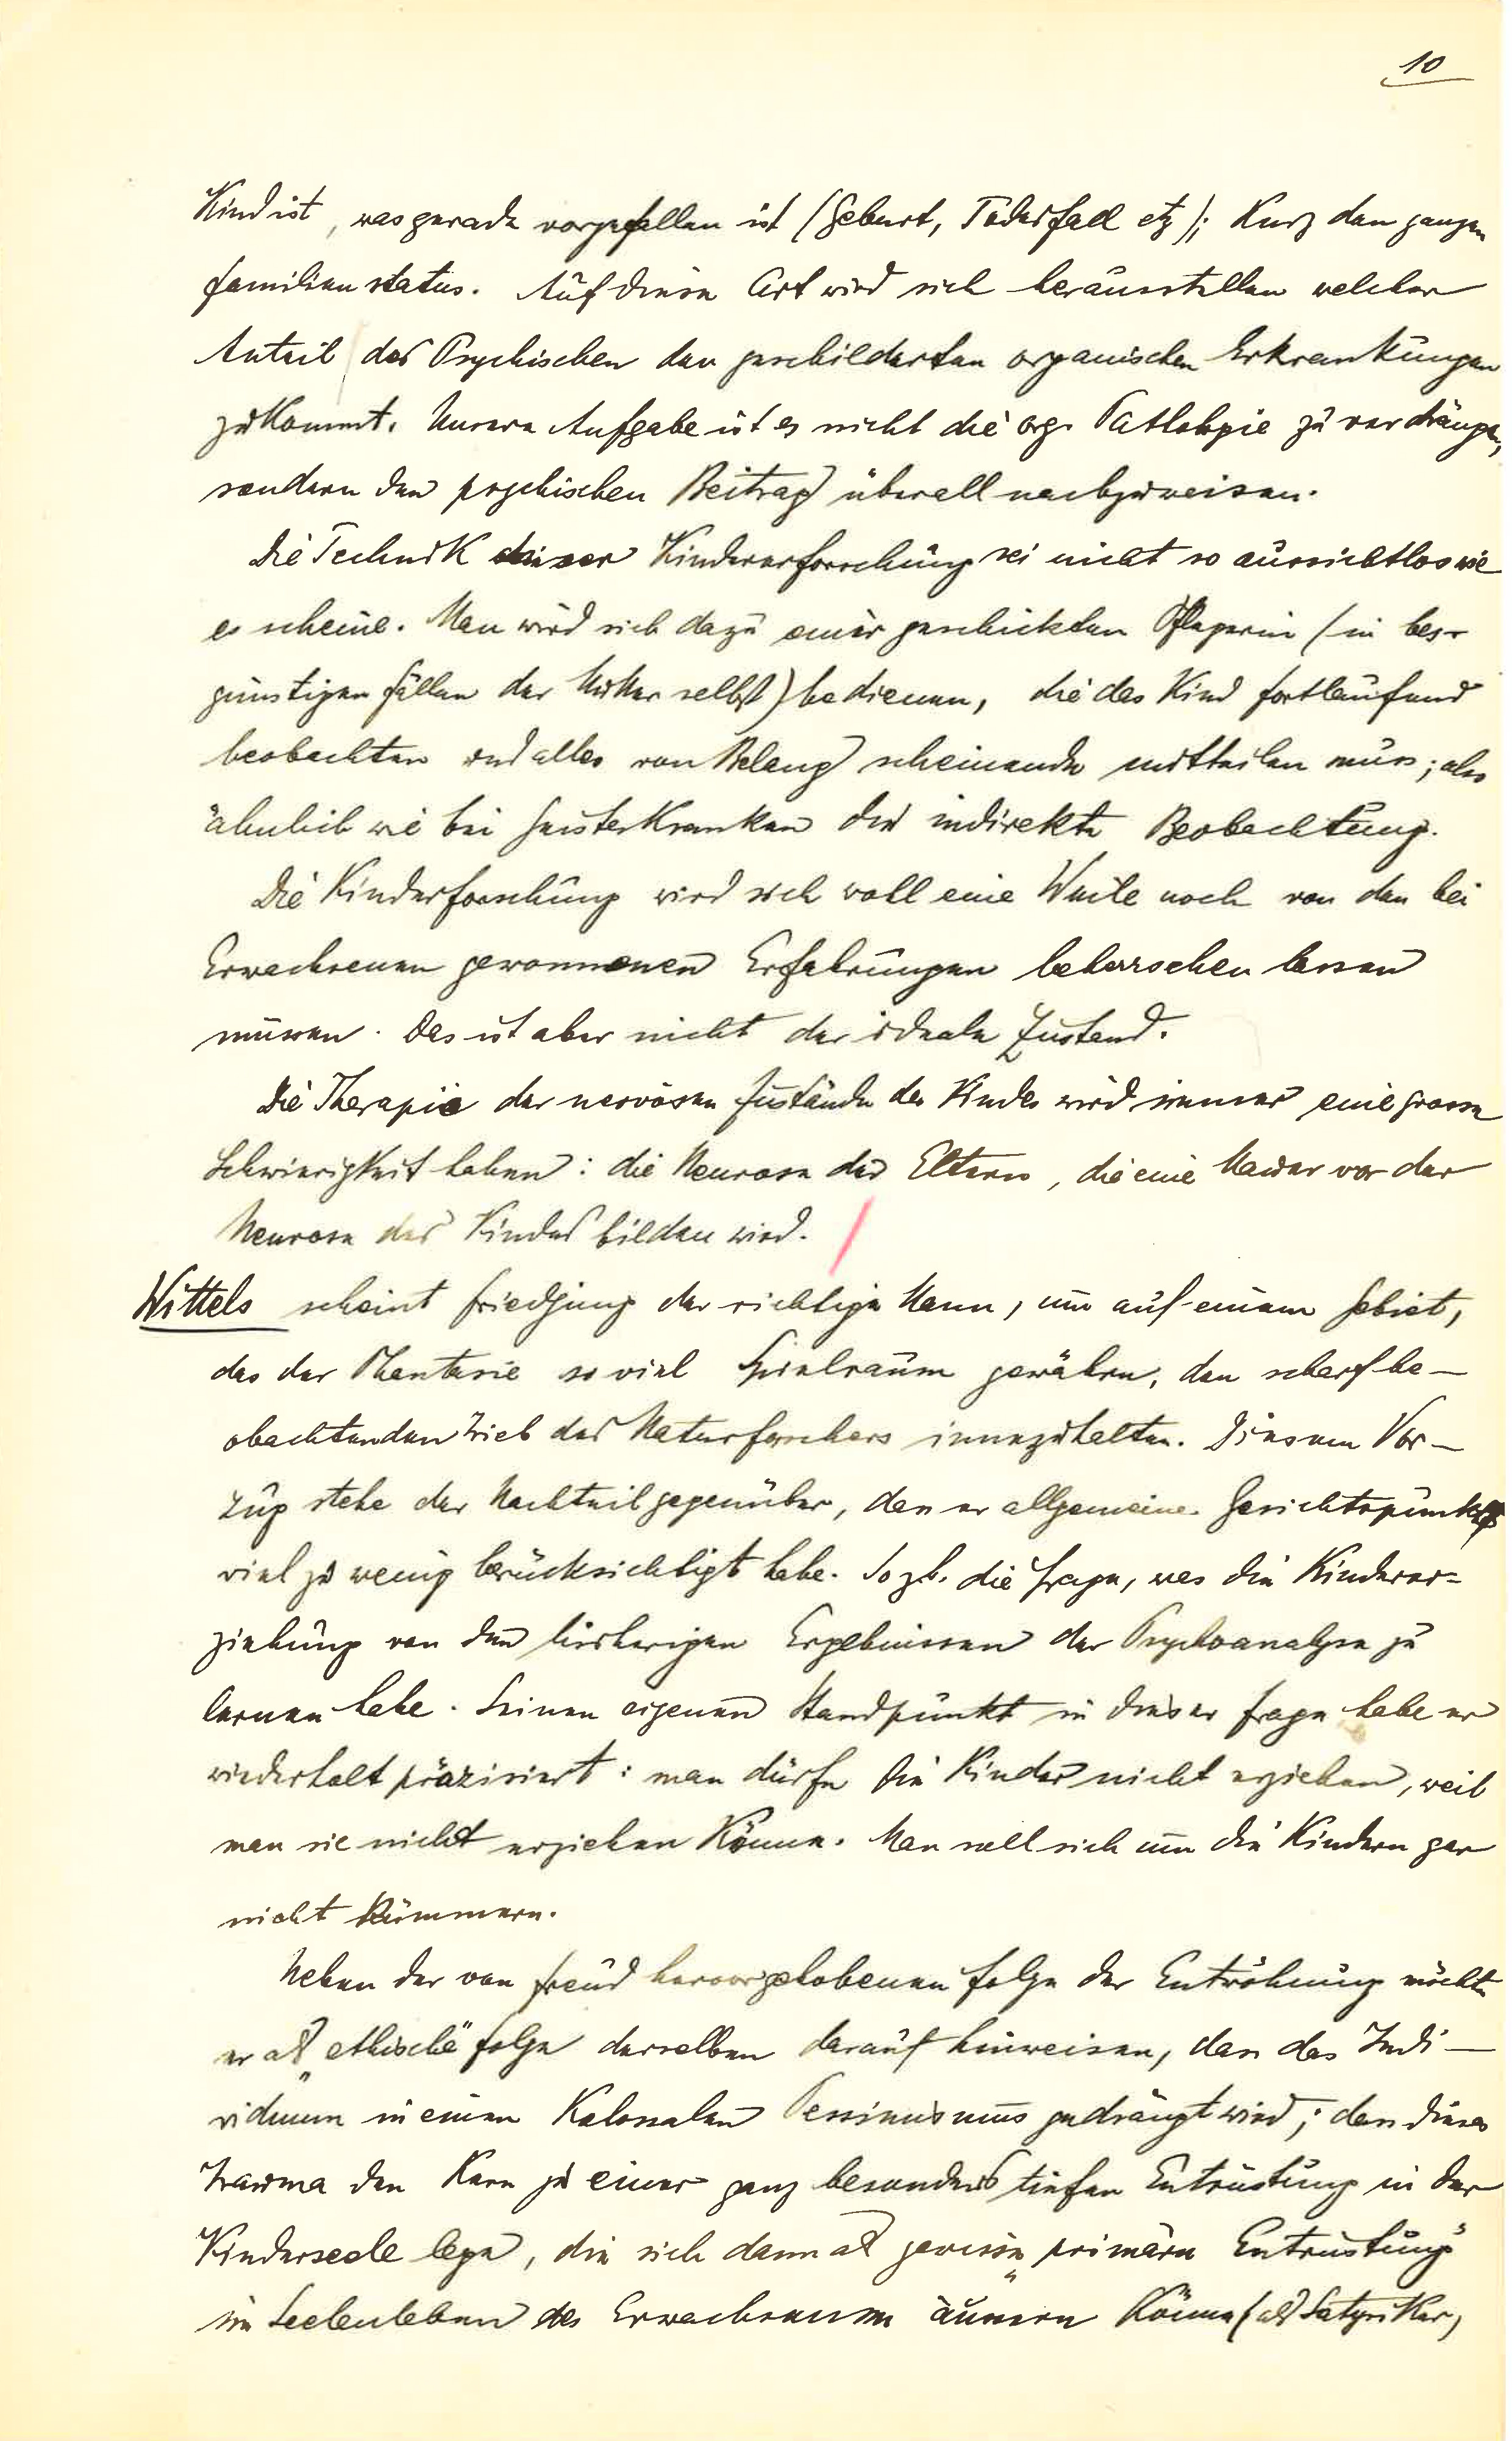 10
Kind ist, was gerade vorgefallen ist (Geburt, Todesfall etz); Kurz den ganzen
Familienstatus. Auf diese Art wird sich herausstellen welcher
Anteil des Psychischen den geschilderten organischen Erkrankungen
zukommt. Unsere Aufgabe ist es nicht die org. Pathologie zu verdrängen,
sondern den psychischen Beitrag überall nachzuweisen.
Die Technik dieser Kindererforschung sei nicht so aussichtlos wie
es scheine. Man wird sich dazu einer geschickten Pflegerin (in bes.
günstigen Fällen der Mutter selbst) bedienen, die das Kind fortlaufend
beobachten und alles von Belang scheinende mitteilen muss; also
ähnlich wie bei Geisteskranken die indirekte Beobachtung.
Die Kinderforschung wird sich wohl eine Weile noch von den bei
Erwachsenen gewonnenen Erfahrungen beherrschen lassen
müssen. Das ist aber nicht der ideale Zustand.
Die Therapie der nervösen Zustände des Kindes wird immer eine grosse
Schwierigkeit haben: die Neurose der Eltern, die eine Mauer vor der
Neurose des Kindes bilden wird.
Wittels scheint Friedjung der richtige Mann, um auf einem Gebiet,
das der Phantasie so viel Spielraum gewähre, den scharf be-
obachtenden Trieb des Naturforschers innezuhalten. Diesem Vor-
zug stehe der Nachteil gegenüber, dass er allgemeine Gesichtspunkte
viel zu wenig berücksichtigt habe. So zb. die Frage, was die Kinderer=
ziehung von den bisherigen Ergebnissen der Psychoanalyse zu
lernen habe. Seinen eigenen Standpunkt in dieser Frage habe er
wiederholt präzisiert: man dürfe die Kinder nicht erziehen, weil
man sie nicht erziehen könne. Man soll sich um die Kindern gar
nicht kümmern.
Neben der von Freud hervorgehobenen Folge der Entwöhnung möchte
er als „ethische" Folge derselben darauf hinweisen, dass das Indi-
viduum in einen Kolossalen Pessimismus gedrängt wird; dass dieses
Trauma den Kern zu einer ganz besonders tiefen Entrüstung in der
Kinderseele lege, die sich dann als gewisse „primäre Entrüstung"
im Seelenleben des Erwachsenen äussern könne (als Satyriker,